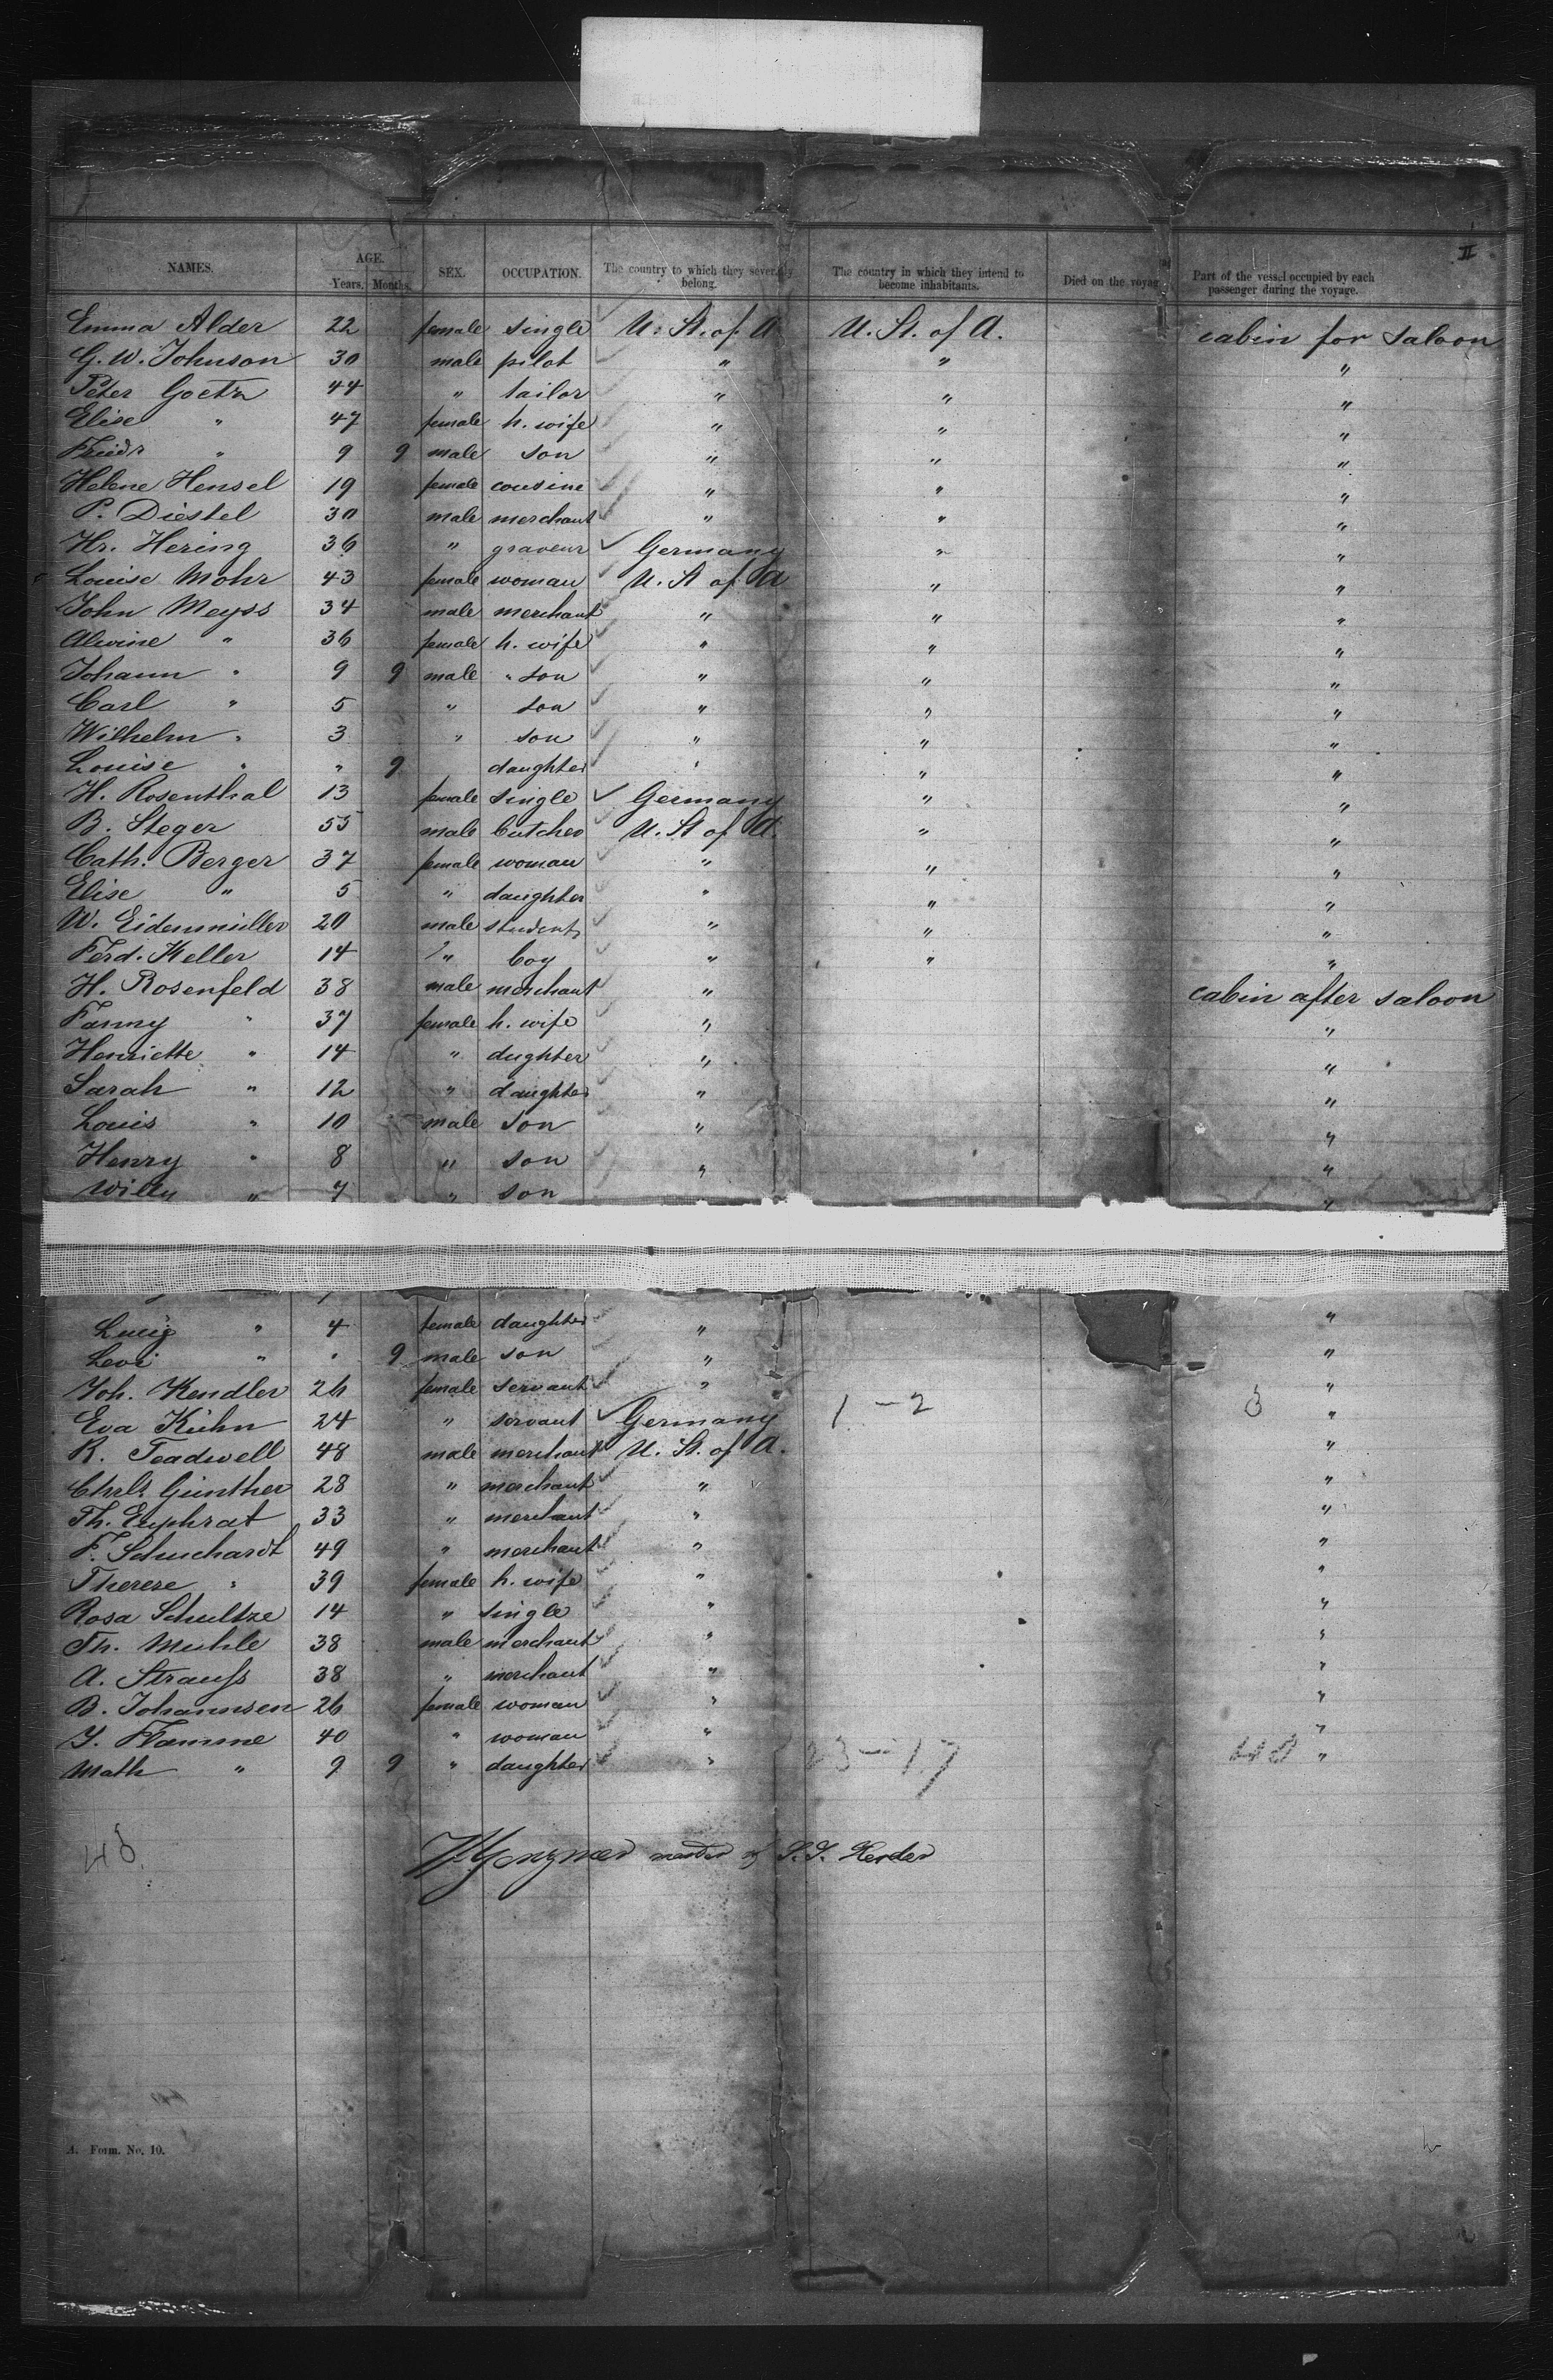 II
NAMES. AGE. Years. Months. SEX. OCCUPATION. The country to which they severally belong. The country in which they intend to become inhabitants. Died on the voyage Part of the vessel occupied by each passenger during the voyage.
Emma Alder 22 female single U. St. of A U. St. of A. cabin for saloon
G. W. Johnson 30 male pilot " " "
Peter Goetz 44 " tailor " " "
Elise " 47 female h. wife " " "
Friedr " 9 9 male son " " "
Helene Hensel 19 female cousine " " "
P. Diestel 30 male merchant " " "
Hr. Hering 36 " graveur Germany " "
Louise Mohr 43 female woman U. St of A " "
John Meyss 34 male merchant " " "
Alwine " 36 female h. wife " " "
Johann " 9 9 male " son " " "
Carl " 5 " son " " "
Wilhelm " 3 " son " " "
Louise " " 9 daughter " " "
H. Rosenthal 13 female single Germany " "
B. Steger 55 male butcher U. St of A. " "
Cath. Berger 37 female woman " " "
Elise " 5 " daughter " " "
W. Eidenmüller 20 male student " " "
Ferd. Keller 14 " boy " " "
H. Rosenfeld 38 male merchant " cabin after saloon
Fanny " 37 female h. wife " "
Henriette " 14 " dughter " "
Sarah " 12 " daughter " "
Louis " 10 male son " "
Henry " 8 " son " "
Willy " 7 " son "
" 4 female daughter " "
Levi " " 9 male son " "
Joh. Kendler 26 female servant " "
Eva Kühn 24 " servant Germany 1-2 3 "
R. Teadwell 48 male merchant U. St. of A. "
Chrls Günther 28 " merchant " "
Th. Euphrat 33 " merchant " "
F. Schuchardt 49 " merchant " "
Therese " 39 female h. wife " "
Rosa Schultze 14 " single " "
Th. Muhle 38 male merchant " "
A. Strauſs 38 " merchant " "
B. Johannsen 26 female woman " "
J. Flamme 40 " woman " "
Math " 9 9 " daughter " 23-17 40 "
43.
master of S.S. Herder
A. Form. No. 10.